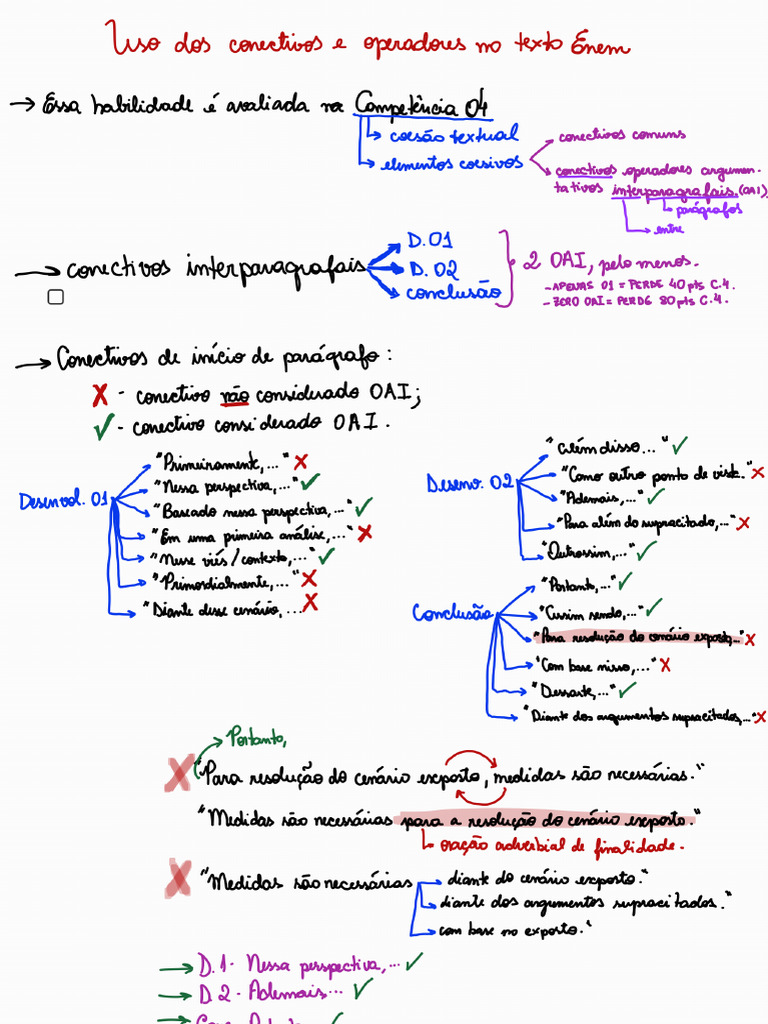 Uso dos conectivos e operadores no texto Enem
→ Essa habilidade é avaliada na Competência 04
coesão textual
elementos coesivos
conectivos comuns
conectivos operadores argumen-
tativos interparagrafais. (OAI)
parágrafos
entre
→ conectivos interparagrafais
D.01
D.02
conclusão
2 OAI, pelo menos.
- APENAS 01 = PERDE 40 pts C.4.
- ZERO OAI = PERDE 80 pts C.4.
→ Conectivos de início de parágrafo:
X - conectivo não considerado OAI;
✓ - conectivo considerado OAI.
Desenvol. 01
"Primeiramente,..." X
"Nessa perspectiva,..." ✓
"Baseado nessa perspectiva,..." ✓
"Em uma primeira análise,..." X
"Nesse viés/contexto,..." ✓
"Primordialmente,..." X
"Diante desse cenário,... X
Desenv. 02
"Além disso..." ✓
"Como outro ponto de vista." X
"Ademais,..." ✓
"Para além do supracitado,..." X
"Outrossim,..." ✓
Conclusão
"Portanto,..." ✓
"Assim sendo,..." ✓
"Para resolução do cenário exposto,..." X
"Com base nisso,..." X
"Dessarte,..." ✓
"Diante dos argumentos supracitados,..." X
Portanto,
X "Para resolução do cenário exposto, medidas são necessárias."
"Medidas são necessárias para a resolução do cenário exposto."
oração adverbial de finalidade.
X "Medidas são necessárias
diante do cenário exposto."
diante dos argumentos supracitados."
com base no exposto."
→ D.1 - Nessa perspectiva,... ✓
→ D.2 - Ademais... ✓